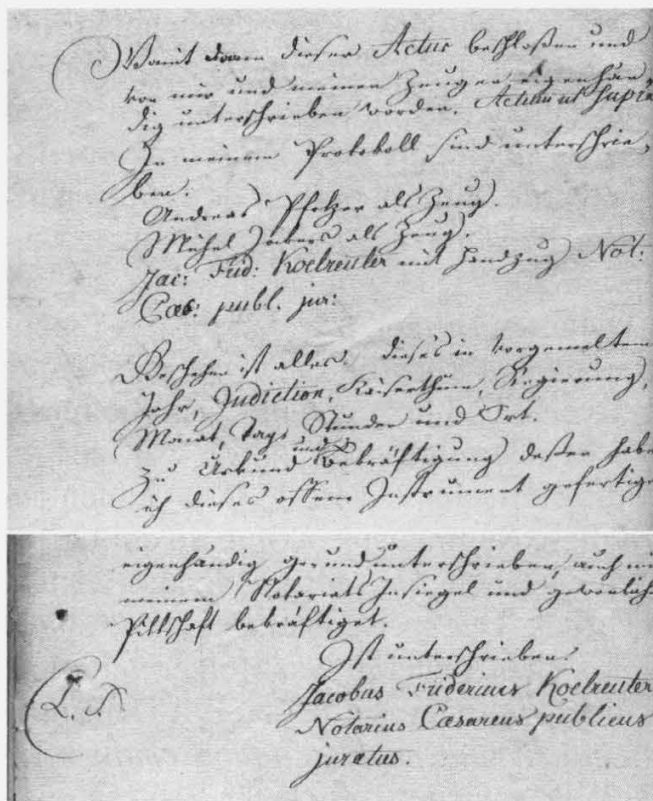 Womit dann dieser Actus beschloßen und
von mir und meinen Zeugen eigenhän-
dig unterschrieben worden. Actum ut supra
In meinem Protokoll sind unterschrie-
ben.
Andreas Pfelzer als Zeug.
Michel als Zeug.
Jac: Frid: Koelreuter mit Handzug Not:
Caes: publ. jur:
Beschehen ist alles dieses in vorgemeltem
Jahr, Indiction, Kaiserthum, Regierung,
Monat, Tags Stunden und Ort.
Zu Urkund und Bekräftigung deßen habe
ich dieses offene Instrument gefertigt
eigenhändig ge- und unterschrieben, auch mi
meinem Notariats Insiegel und gewonlich
Pittschaft bekräftiget.
Ist unterschrieben.
L. S.
Jacobus Fridericus Koelreuter
Notarius Cæsareus publicus
juratus.